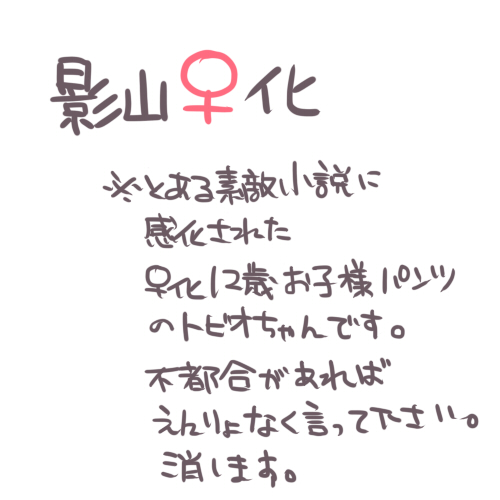 影山♀化
※とある素敵小説に
感化された
♀化12歳お子様パンツ
のトビオちゃんです。
不都合があれば
えんりょなく言って下さい。
消します。